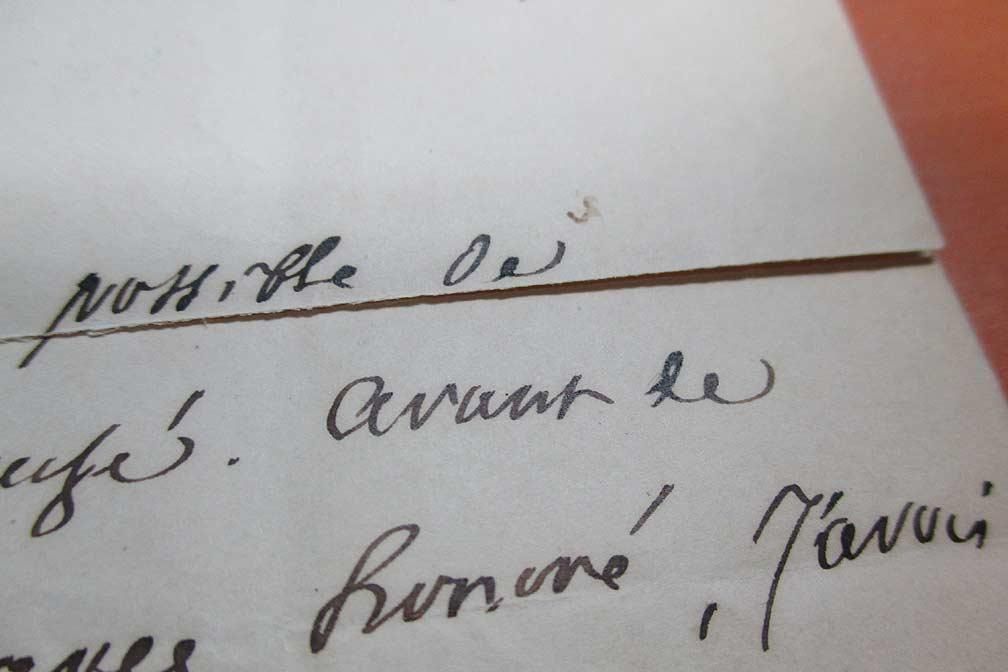 possible de
avant le
honoré, J'avois